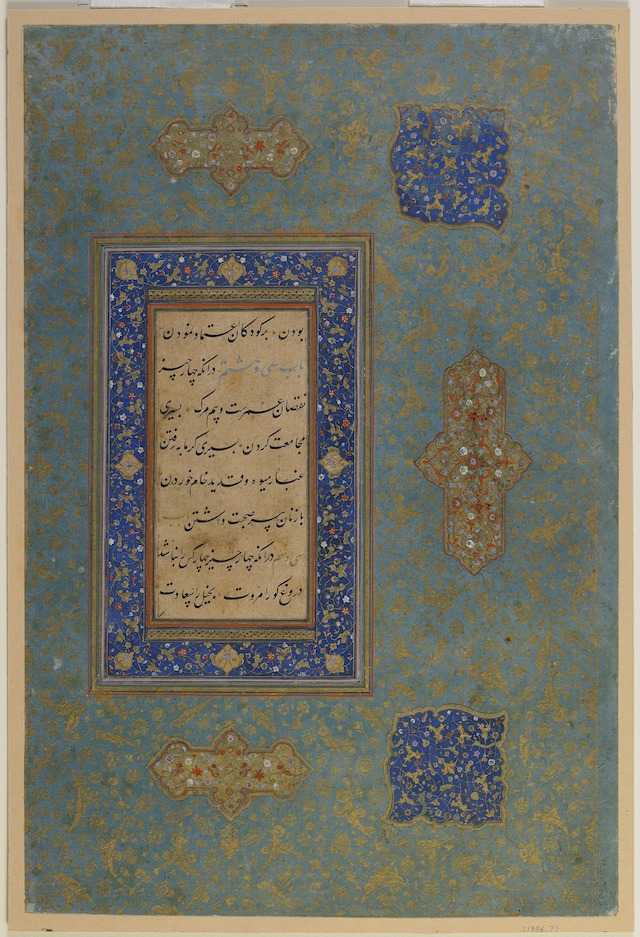 بودن * بر کودکان اعتماد نمودن
باب سی و هشتم در انکه چهار چیز
نقصان عمرست و بیم مرک * بسیری
مجامعت کردن * بسیری کرمابه رفتن
میوه و قدید خام خوردن
با زنان پیر صحبت داشتن باب
سی و نهم در انکه چهار چیز چهار کس را نباشد
دروغ کو را مروت * بخیل را سعادت
S1986.71